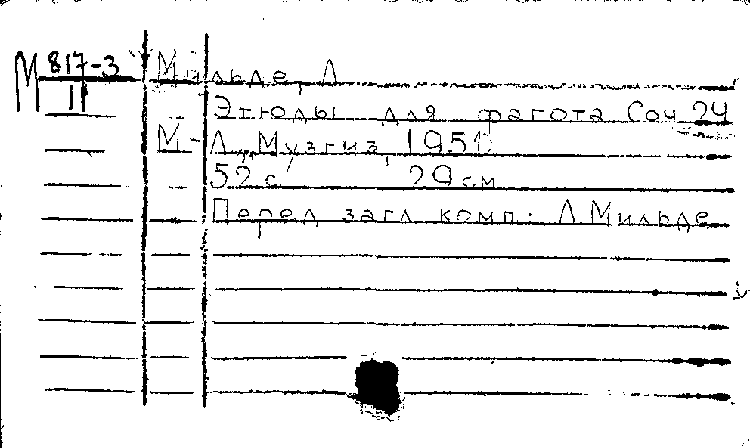 М 817-3 Мильде, Л
II
Этюды для фагота Соч 24
М-Л, Музгиз, 1951
52 с. 29 см
Перед загл комп: Л Мильде